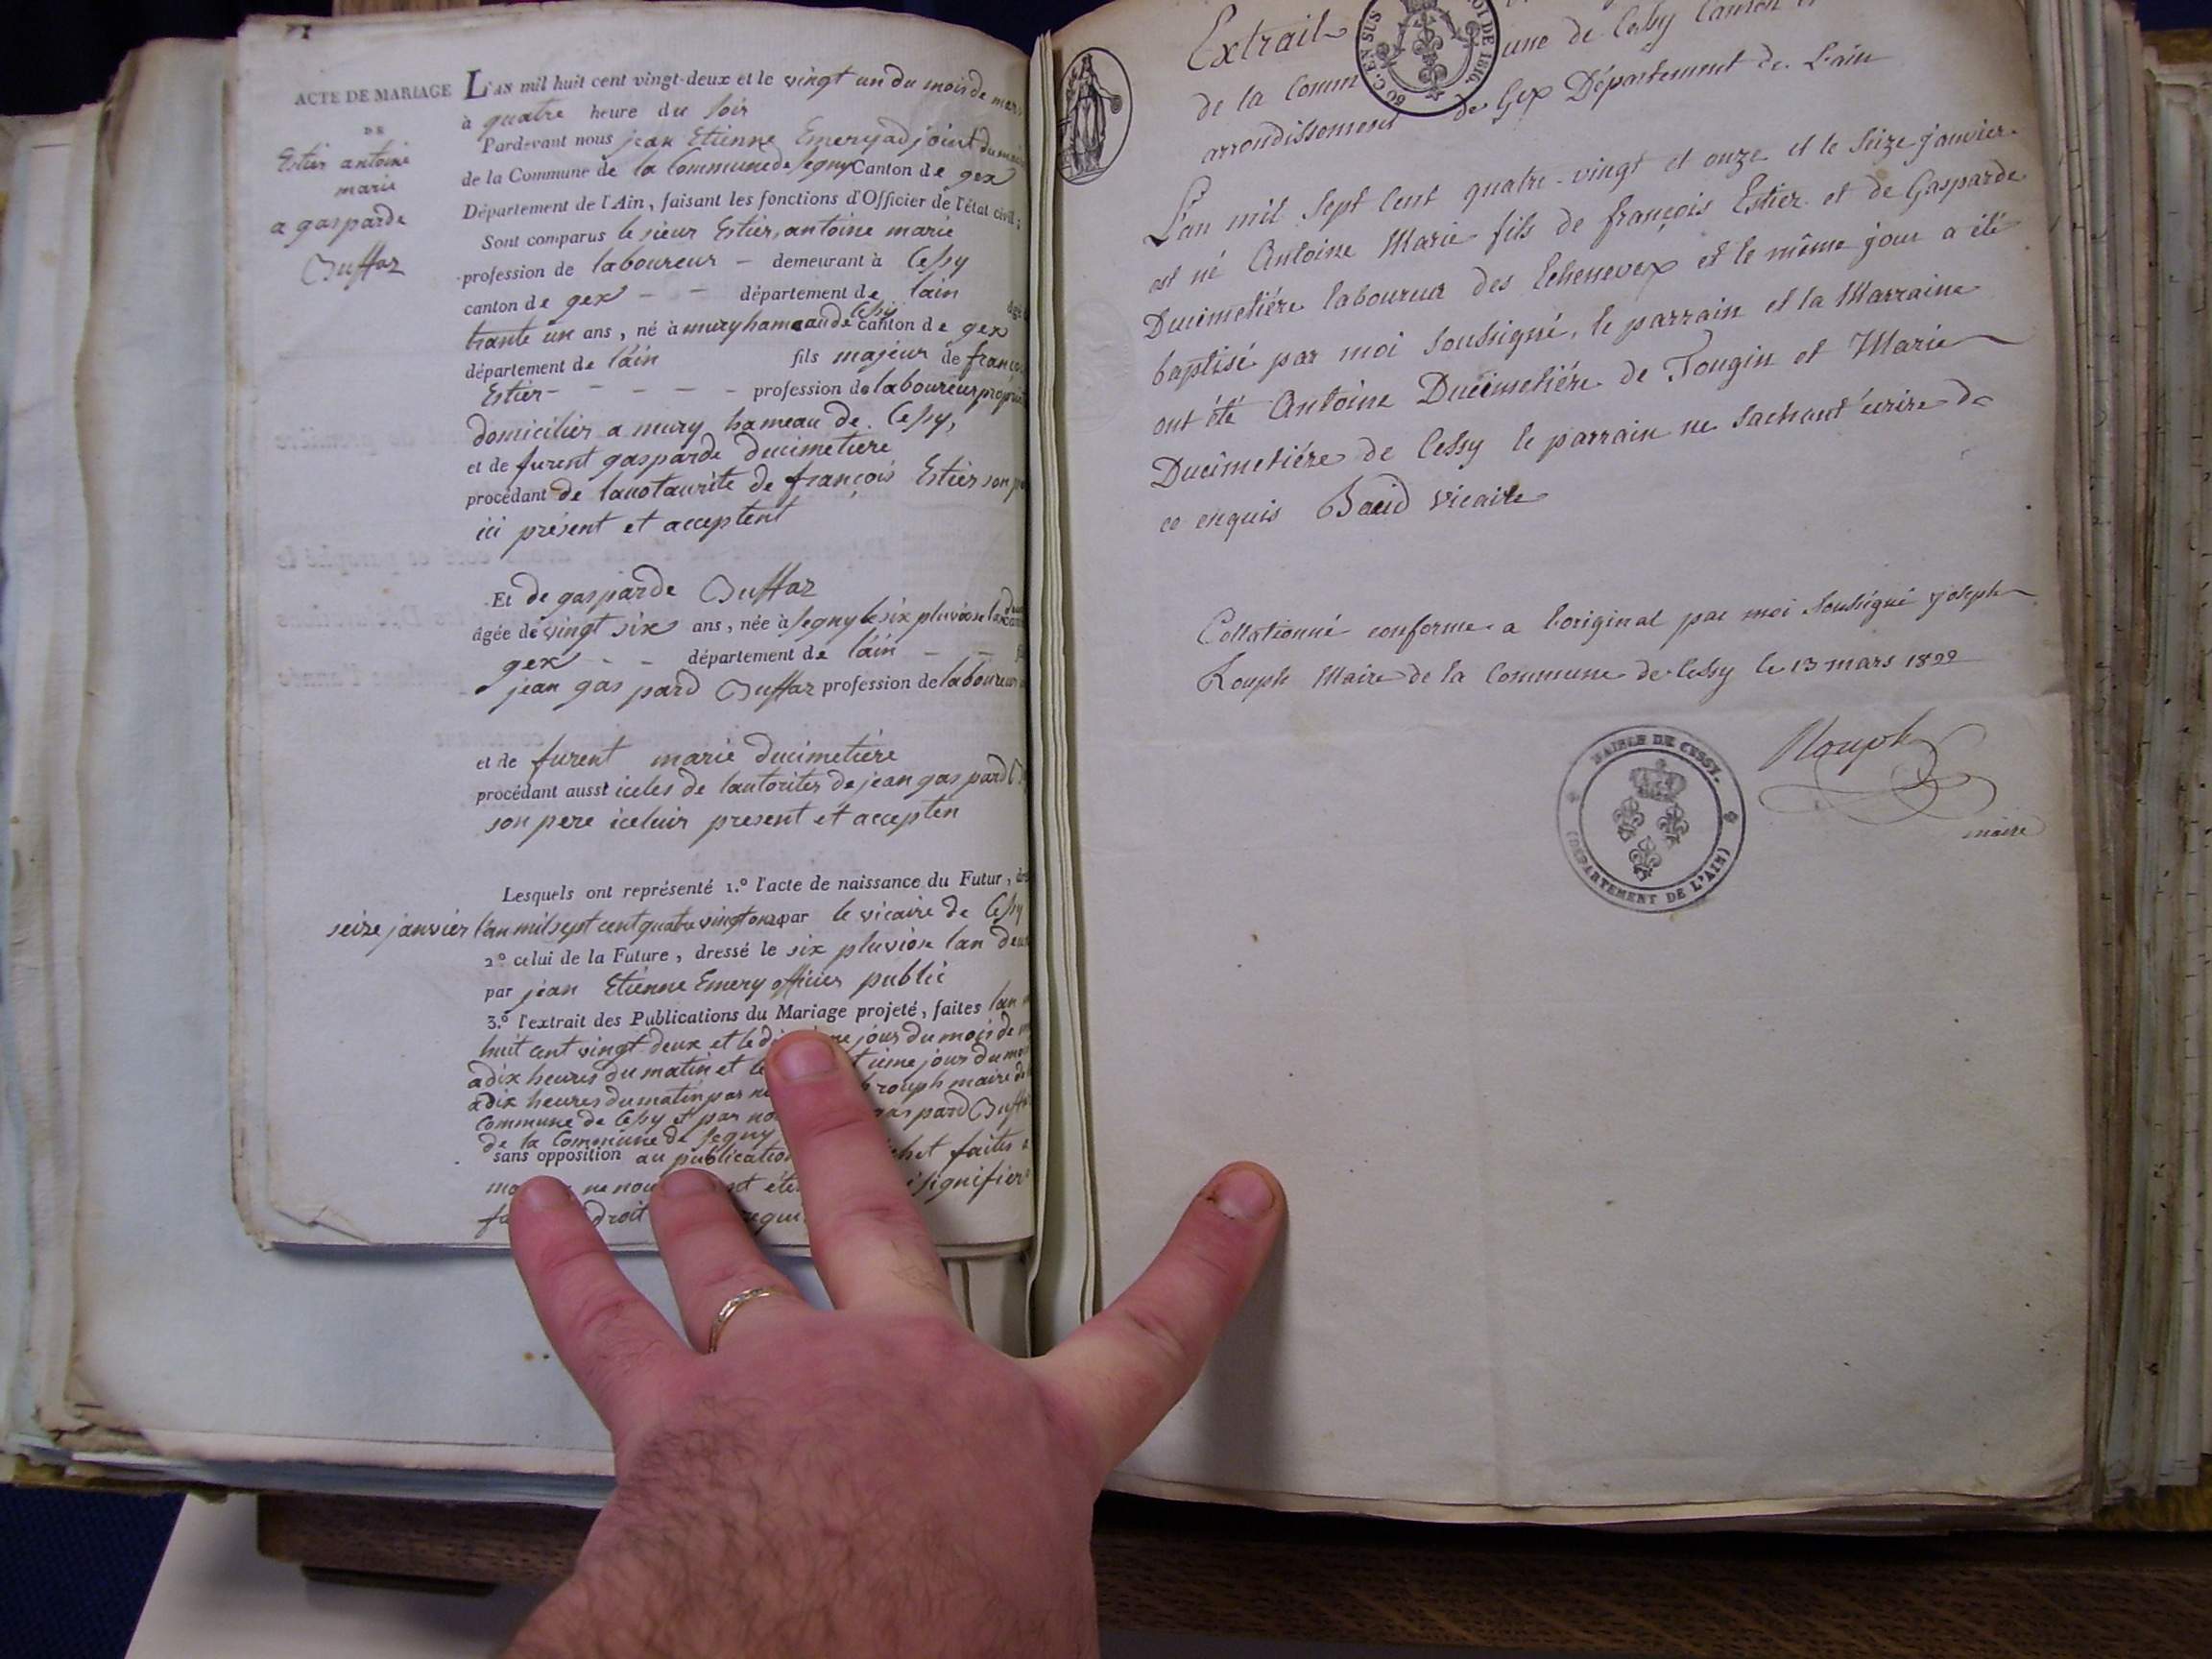 ACTE DE MARIAGE
DE
Estier antoine
marie
a gasparde
Buffaz
L'AN mil huit cent vingt-deux et le vingt un du mois de mars
à quatre heure du soir
Pardevant nous jean Etienne Emery adjoint du
de la Commune de la Commune de Segny Canton de gex
Département de l'Ain, faisant les fonctions d'Officier de l'état civil :
Sont comparus le sieur Estier, antoine marie
profession de laboureur - demeurant à Cessy
canton de gex - - département de lain
trante un ans, né à mury hameau de Cessy canton de gex
département de l'ain fils majeur de franço
Estier - - - - - profession de laboureur
domicilier a mury hameau de Cessy,
et de furent gasparde ducimetiere
procédant de lauotaurité de françois Estier son
ici présent et acceptent
Et de gasparde Buffaz
âgée de vingt six ans, née à Segny le six pluviose lan
gex - - département de l'ain - -
jean gaspard Buffaz profession de laboureur
et de furent marie ducimetiére
procédant aussi iceles de lautorites de jean gaspard
son pere iceluir present et accepten
Lesquels ont représenté 1.º l'acte de naissance du Futur,
seize janvier l'an mil sept cent quatre vingt onze par le vicaire de Cessy
2º celui de la Future, dressé le six pluviose lan deux
par jean Etienne Emery officier public
3.º l'extrait des Publications du Mariage projeté, faites lan
huit cent vingt-deux et le jour du mois de
a dix heures du matin et le jour du
a dix heures du matin par rouph maire de
commune de Cessy et par no gaspard Buff
de la Commune de Segny
sans opposition au publication faites
signifier
droit
Extrait
de la Comm une de Cessy Canton et
arrondissement de Gex Département de L'ain
60 C. EN SUS
LOI DE 1816.
L'an mil Sept Cent quatre-vingt et onze et le Seize janvier
est né Antoine Marie fils de françois Estier et de Gasparde
Ducimetiére laboureur des Echenevex et le même jour a été
baptisé par moi Soussigné, le parrain et la Marraine
ont été Antoine Ducimetiére de Tougin et Marie
Ducimetiére de Cessy le parrain ne Sachant écrire de
ce enquis Baud Vicaire
Collationné conforme a l'original par moi Soussigné joseph
Rouph Maire de la Commune de Cessy le 13 mars 1822
MAIRIE DE CESSY.
(DEPARTEMENT DE L'AIN)
Rouph
maire